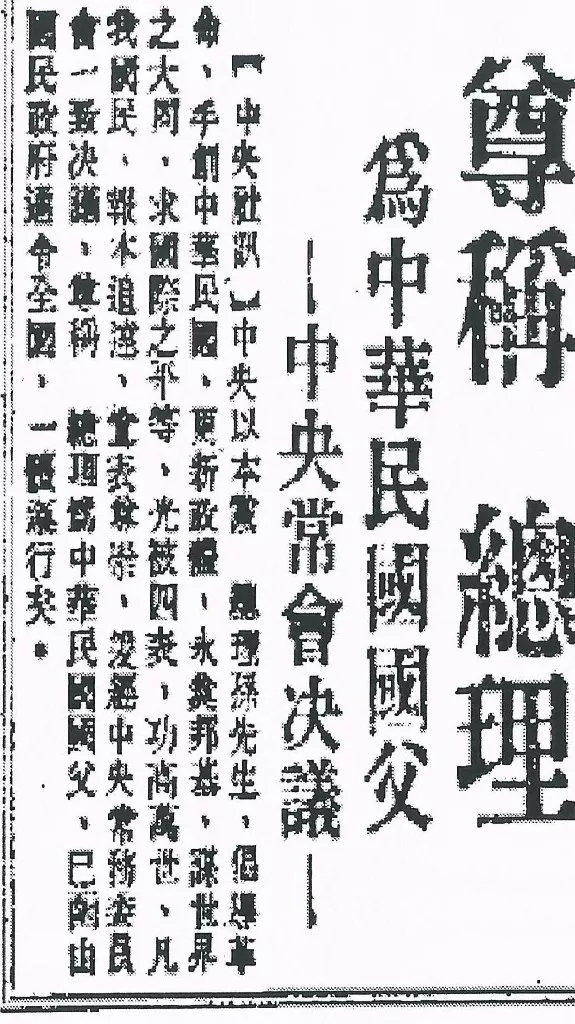 尊稱　總理
爲中華民國國父
—中央常會決議—
【中央社訊】中央以本黨　總理孫先生、倡導革
命、手創中華民國、更新政體、永奠邦基、謀世界
之大同、求國際之平等、光被四表、功高萬世、凡
我國民、報本追遠、宜表尊崇、茲經中央常務委員
會一致決議、尊稱　總理爲中華民國國父、已函由
國民政府通令全國、一體遵行矣。